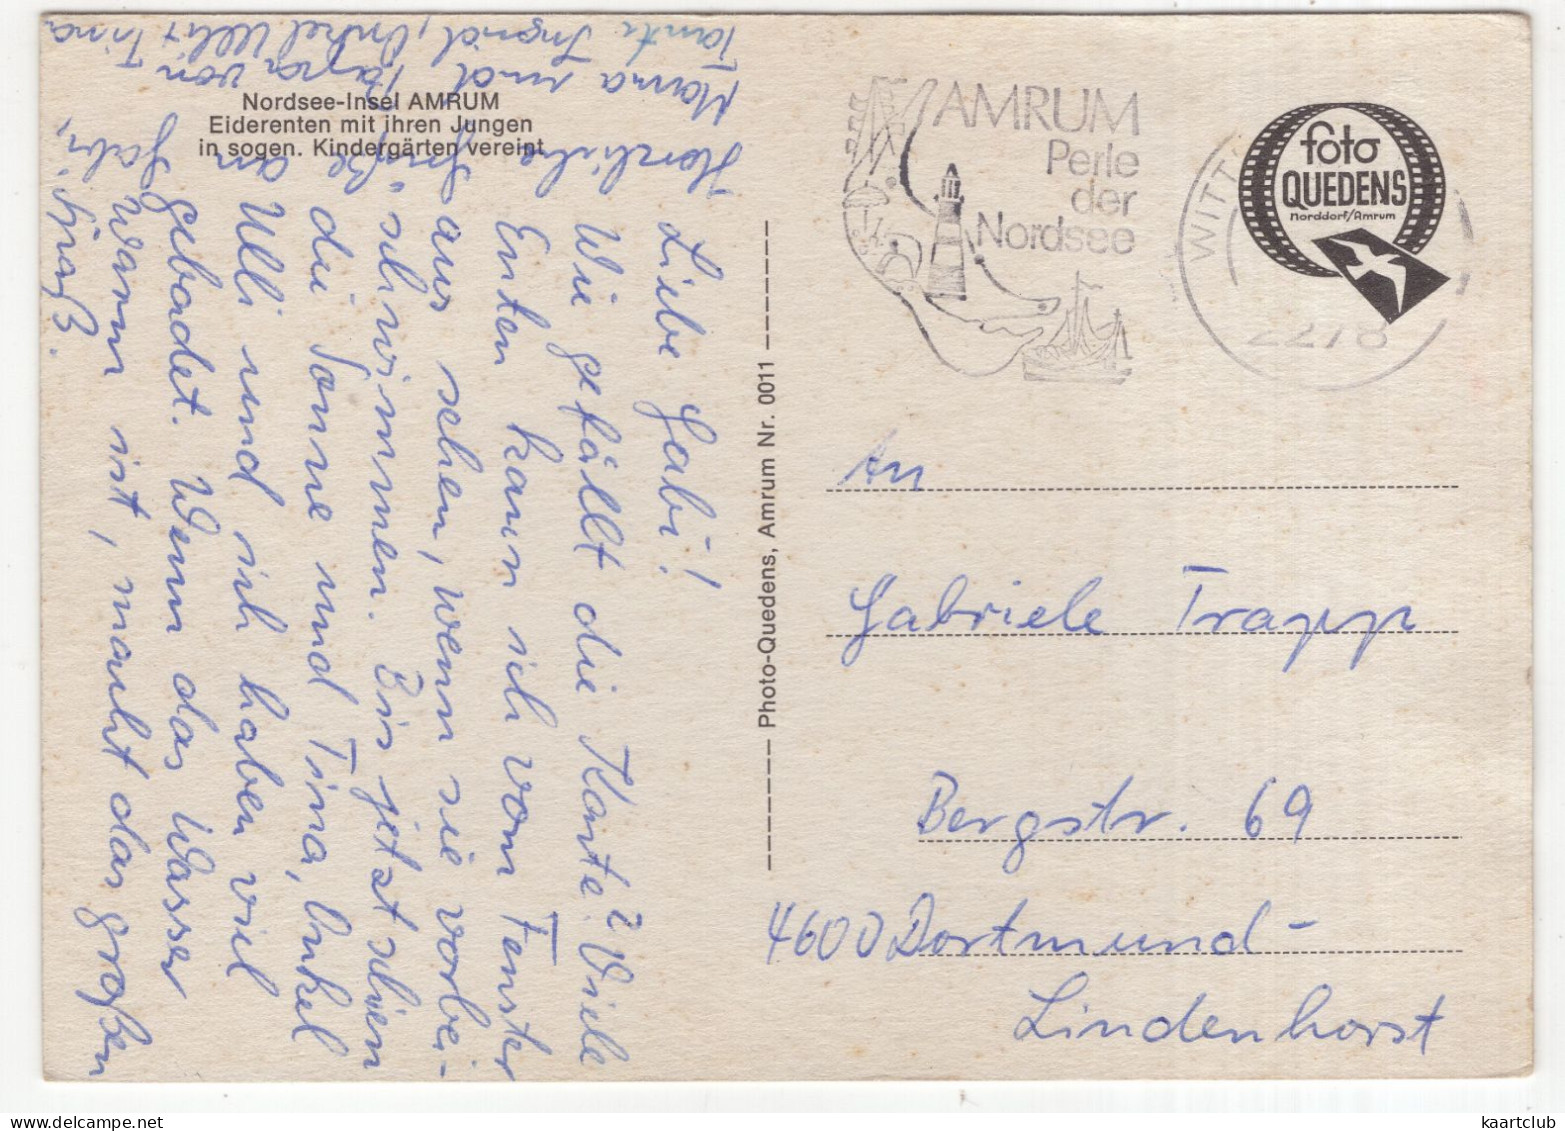 Nordsee-Insel AMRUM
Eiderenten mit ihren Jungen
in sogen. Kindergärten vereint
Liebe Gabi!
Wie gefällt die Karte? Viele
Enten kann ich vom Fenster
aus sehen, wenn sie vorbei-
schwimmen. Bis jetzt schien
die Sonne und Tina, Onkel
Ulli und ich haben viel
gebadet. Wenn das Wasser
warm ist, macht das großen
Spaß.
Herzliche Grüße an Gabi,
Mama und Papa von
Tante Ingrid, Onkel Ulli + Tina
Photo-Quedens, Amrum Nr. 0011
AMRUM
Perle
der
Nordsee
WITT
2278
foto
QUEDENS
Norddorf/Amrum
An
Gabriele Trapp
Bergstr. 69
4600 Dortmund-
Lindenhorst
kaartclub